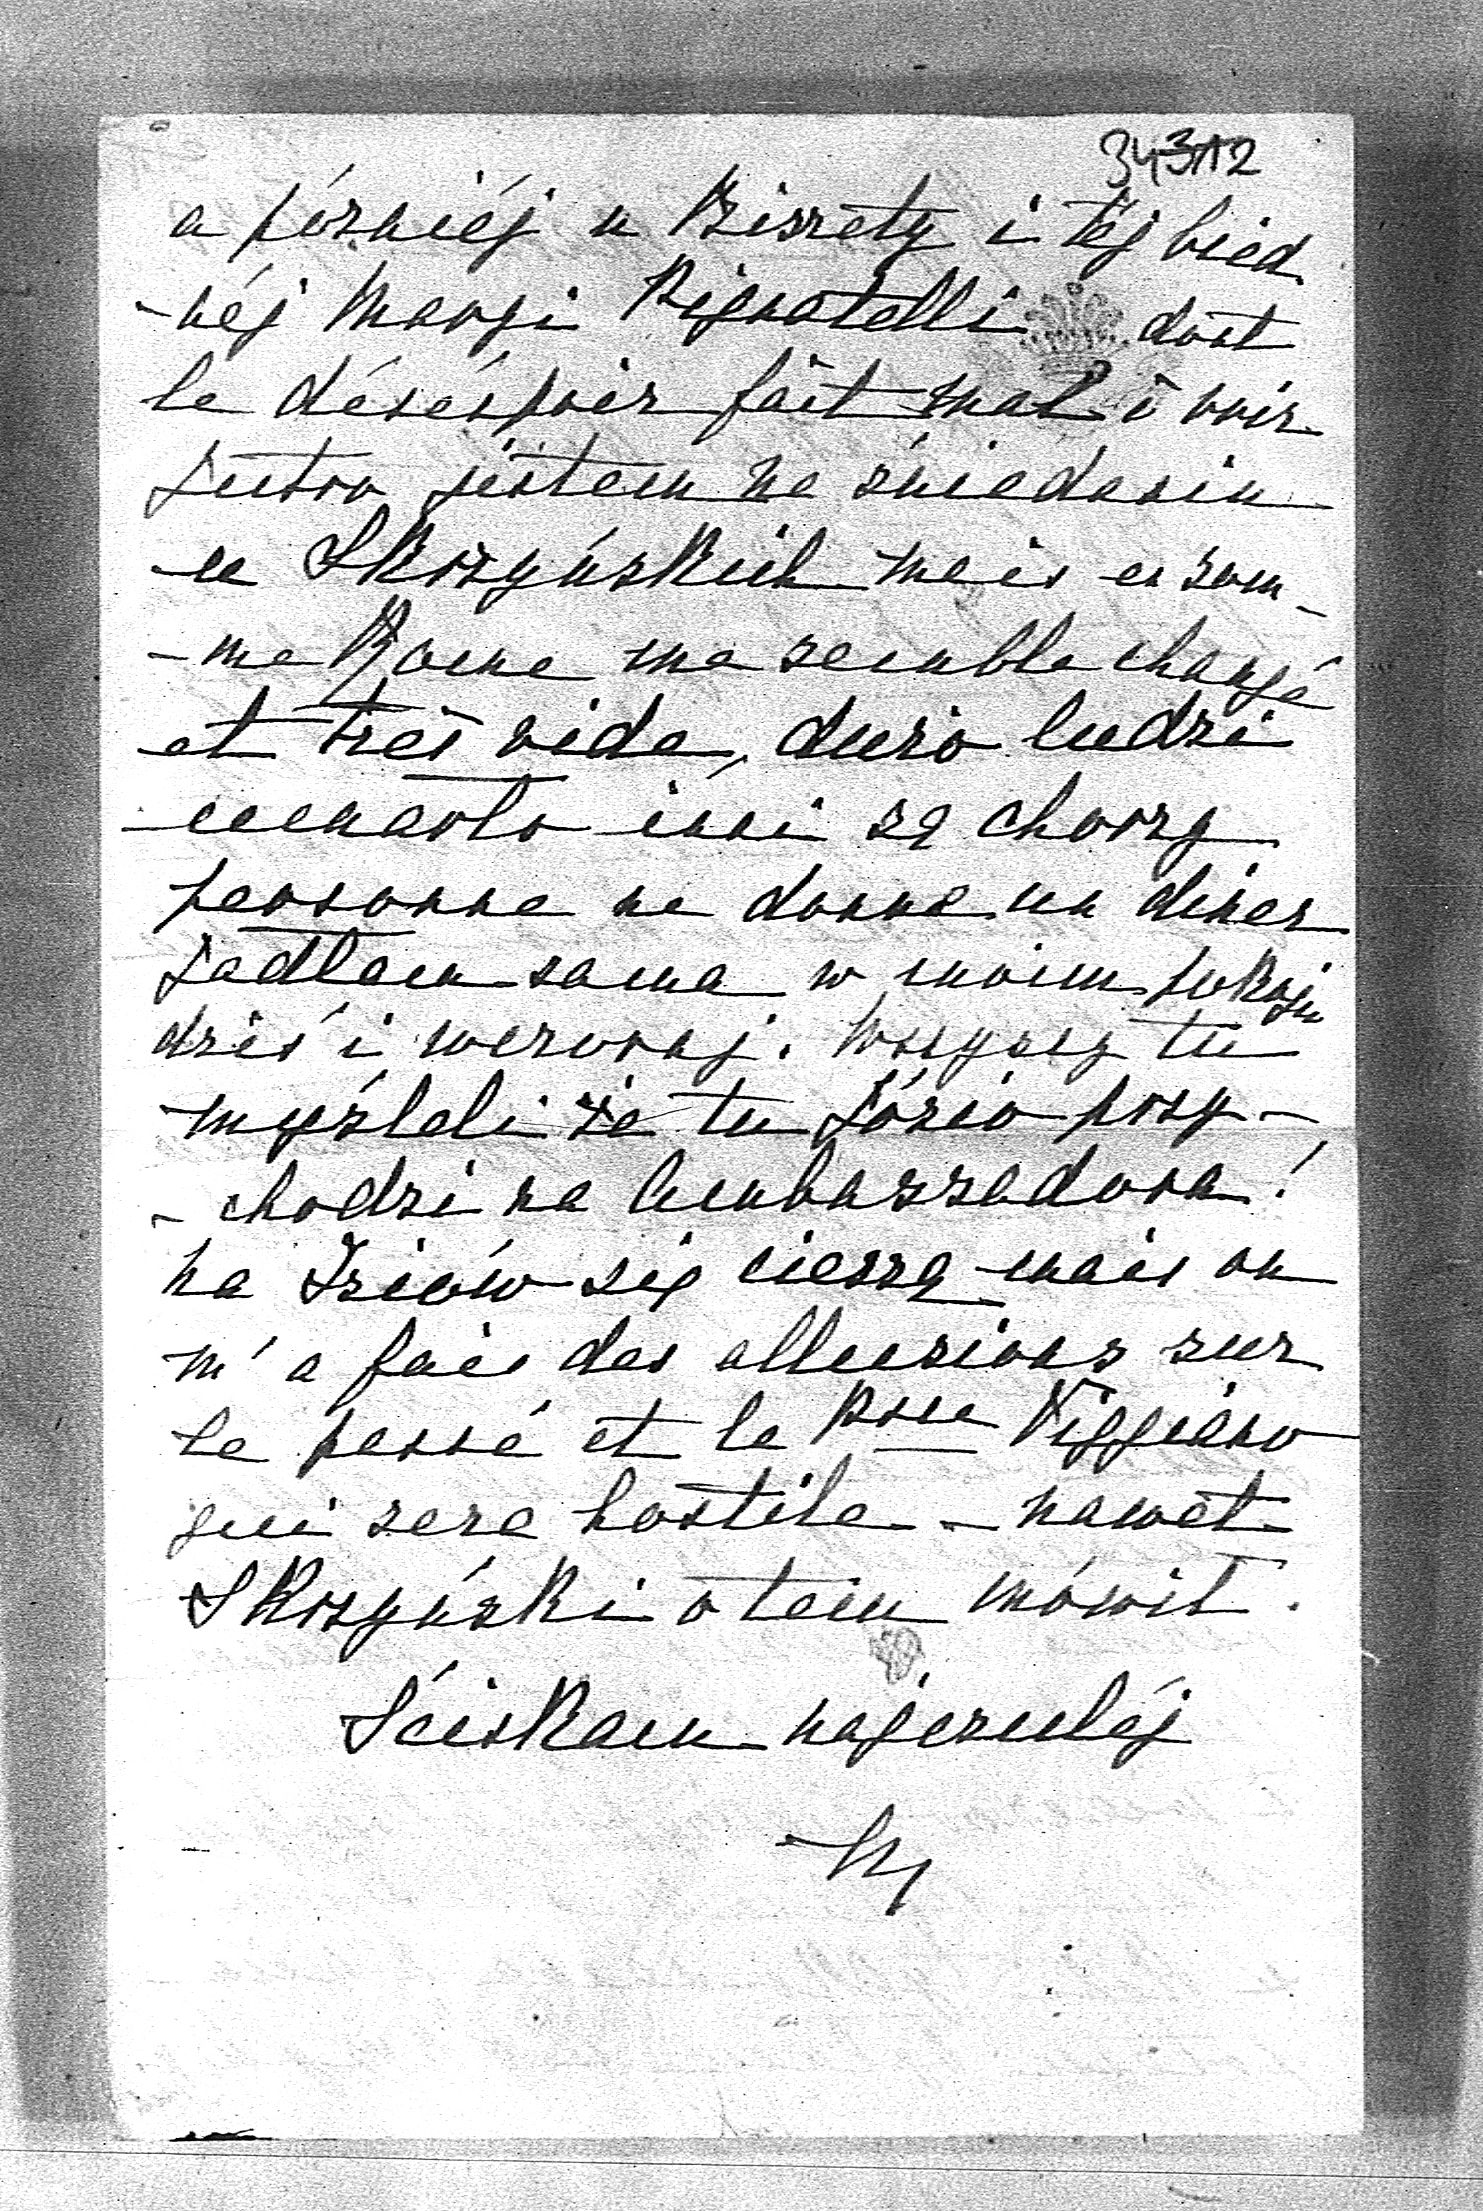 343112
a późniéj u Bissety i téj bied
-néj Margi Pignatelli dont
le désespoir fait mal à voir
Jutro jestem na śniadaniu
u Skrzyńskich mais en som-
-me Rome me semble changé
et très vide, dużo ludzi
umarło inni są chorzy
personne ne donne un diner
Jadłam sama w moim pokoju
dziś i wczoraj. Wszyscy tu
myśleli że tu Józio przy-
-chodzi na Ambassadora!
na Iziów się cieszą mais on
m'a fait des allusions sur
le passé et la Psse Viggiano
qui sera hostile - nawet
Skrzyński o tem mówił.
Ściskam najczuléj